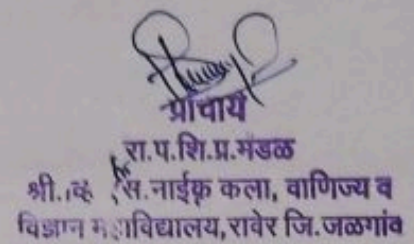 प्राचार्य
रा.प.शि.प्र.मंडळ
श्री. व्हं स.नाईक कला, वाणिज्य व
विज्ञान महाविद्यालय,रावेर जि.जळगांव